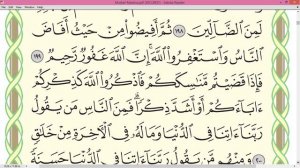 لَمِنَ ٱلضَّآلِّينَ ١٩٨ ثُمَّ أَفِيضُوا۟ مِنْ حَيْثُ أَفَاضَ
ٱلنَّاسُ وَٱسْتَغْفِرُوا۟ ٱللَّهَ إِنَّ ٱللَّهَ غَفُورٌ رَّحِيمٌ ١٩٩
فَإِذَا قَضَيْتُم مَّنَٰسِكَكُمْ فَٱذْكُرُوا۟ ٱللَّهَ كَذِكْرِكُمْ
ءَابَآءَكُمْ أَوْ أَشَدَّ ذِكْرًا فَمِنَ ٱلنَّاسِ مَن يَقُولُ
رَبَّنَآ ءَاتِنَا فِى ٱلدُّنْيَا وَمَا لَهُۥ فِى ٱلْءَاخِرَةِ مِنْ خَلَٰقٍ
٢٠٠ وَمِنْهُم مَّن يَقُولُ رَبَّنَآ ءَاتِنَا فِى ٱلدُّنْيَا حَسَنَةً